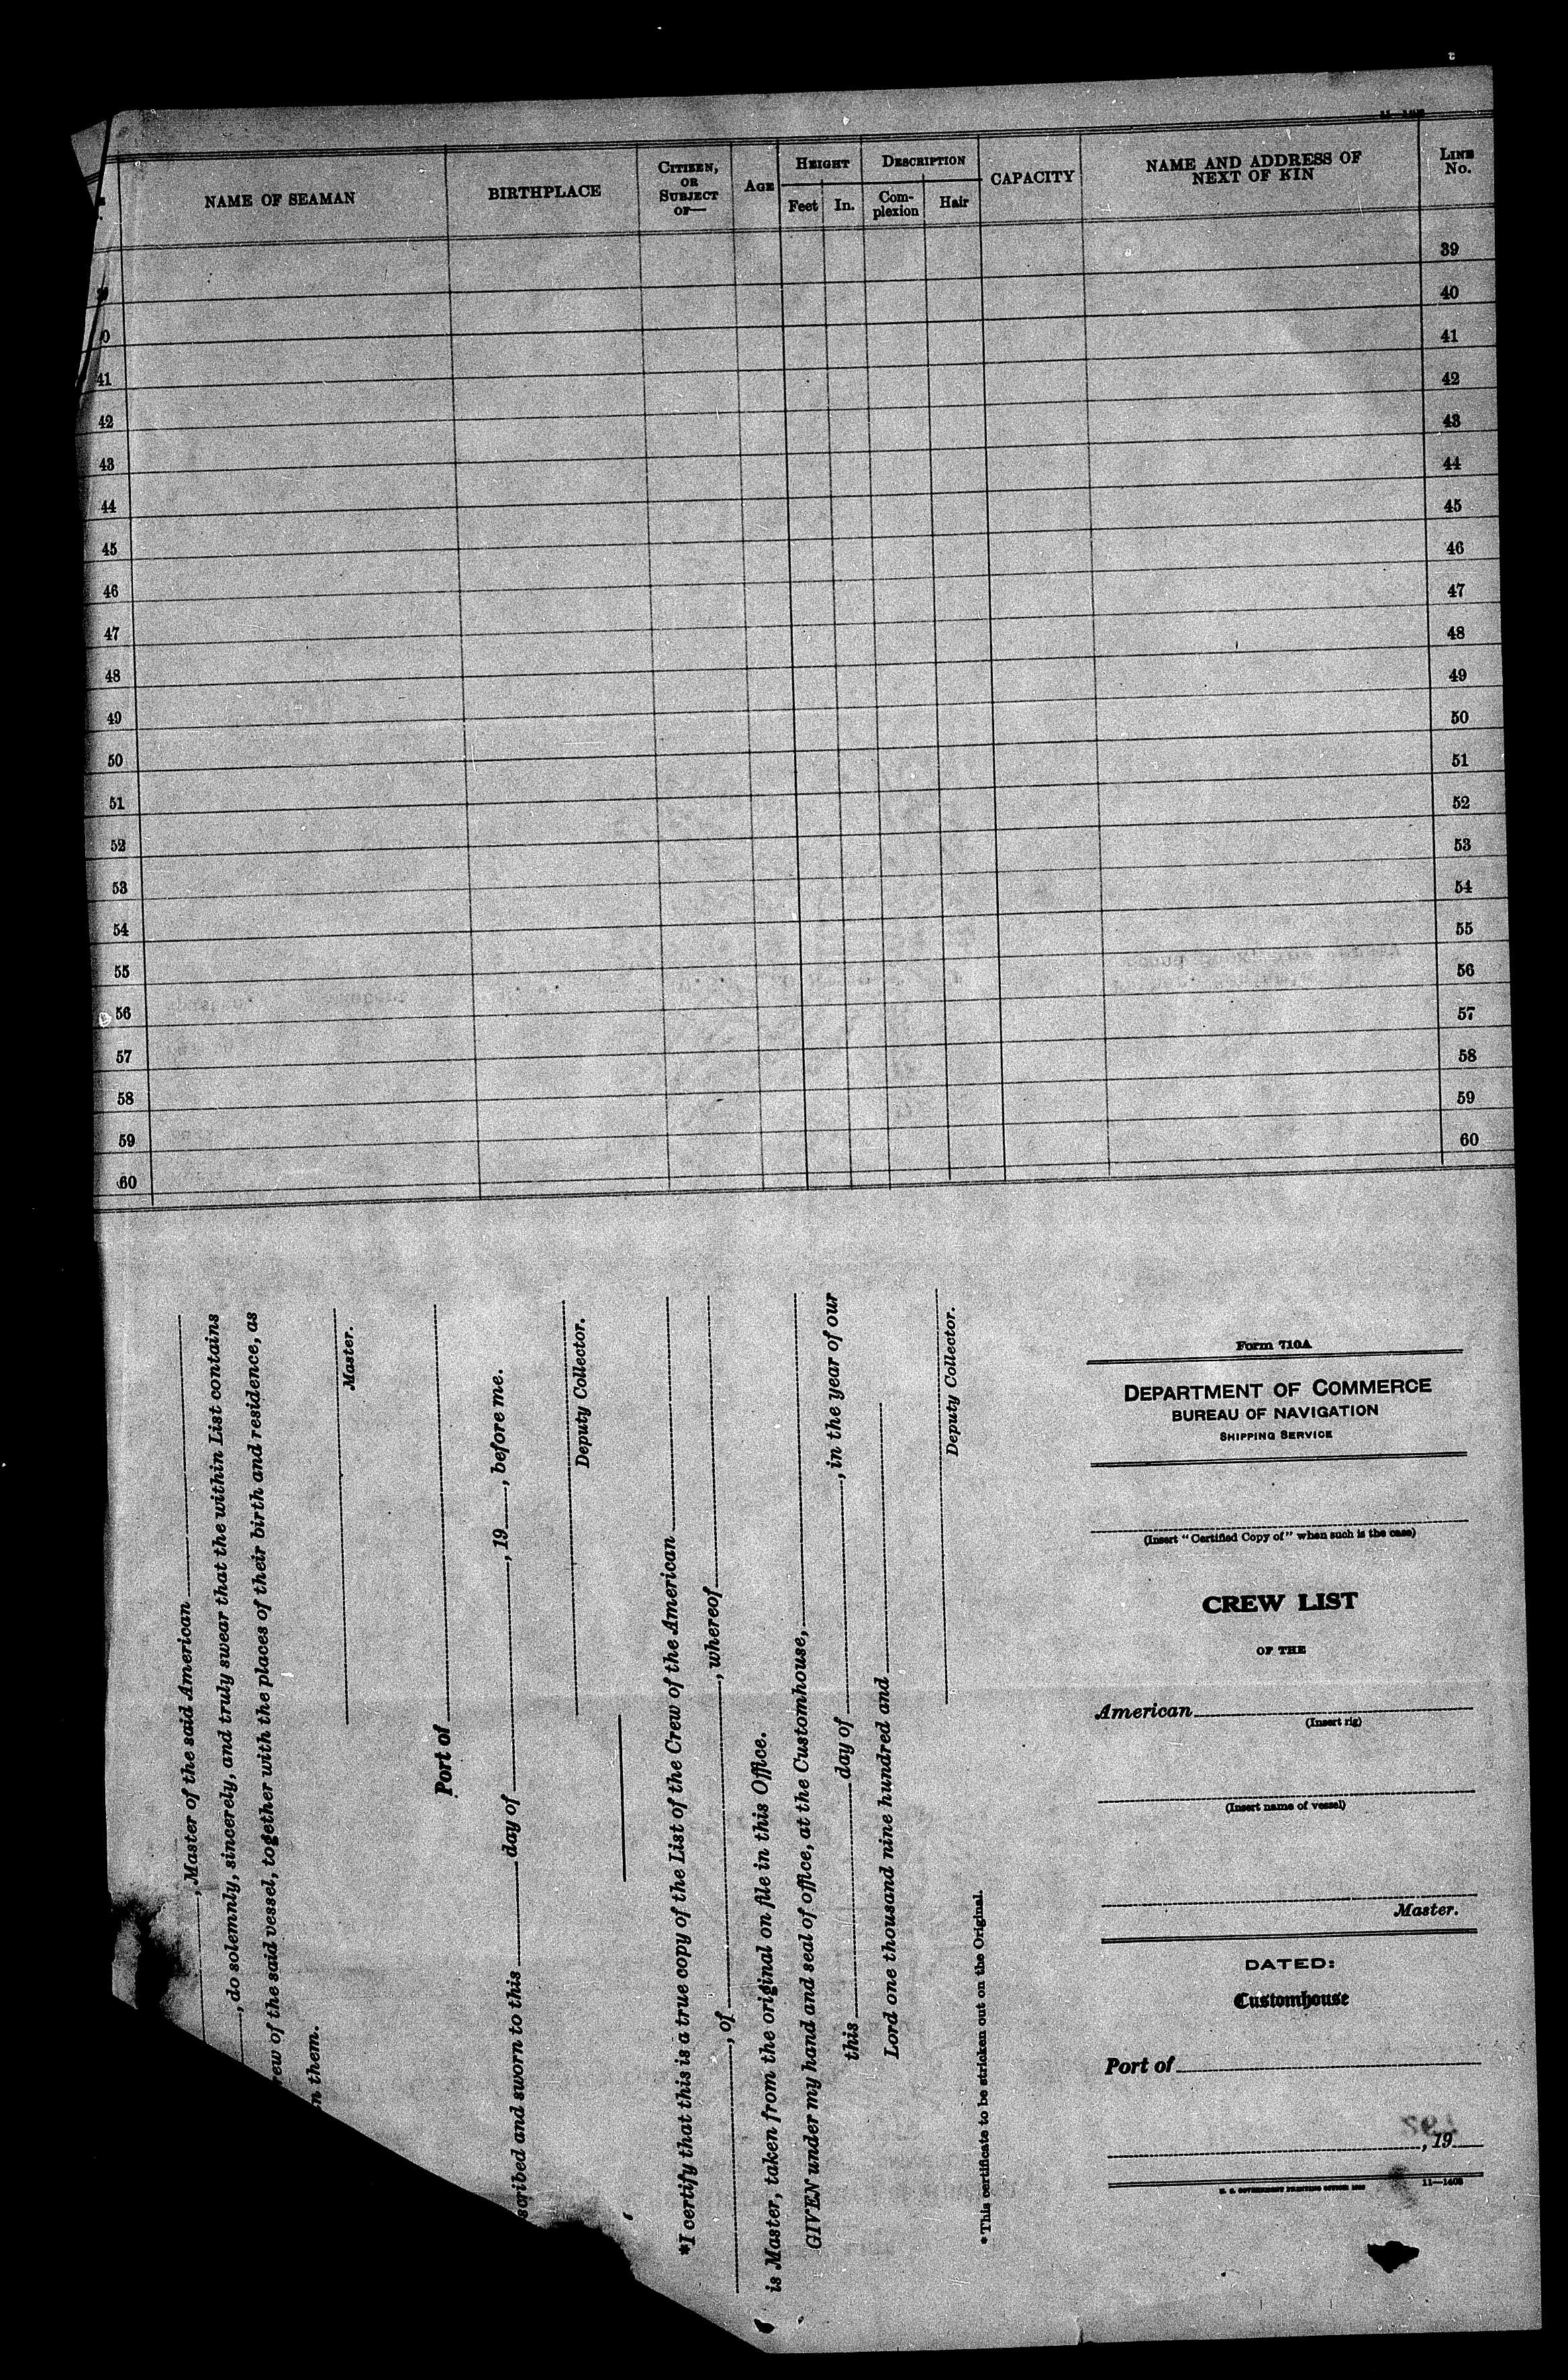 11—1408
NAME OF SEAMAN
BIRTHPLACE
CITIZEN,
OR
SUBJECT
OF—
AGE
HEIGHT
Feet
In.
DESCRIPTION
Com-
plexion
Hair
CAPACITY
NAME AND ADDRESS OF
NEXT OF KIN
LINE
No.
39
40
41
41
42
42
43
43
44
44
45
45
46
46
47
47
48
48
49
49
50
50
51
51
52
52
53
53
54
54
55
55
56
56
57
57
58
58
59
59
60
60
, Master of the said American
, do solemnly, sincerely, and truly swear that the within List contains
of the said vessel, together with the places of their birth and residence, as
them.
Master.
Port of
and sworn to this day of , 19 , before me.
Deputy Collector.
*I certify that this is a true copy of the List of the Crew of the American
, of , whereof
is Master, taken from the original on file in this Office.
GIVEN under my hand and seal of office, at the Customhouse,
this day of , in the year of our
Lord one thousand nine hundred and
Deputy Collector.
*This certificate to be stricken out on the Original.
Form 710A
DEPARTMENT OF COMMERCE
BUREAU OF NAVIGATION
SHIPPING SERVICE
(Insert "Certified Copy of" when such is the case)
CREW LIST
OF THE
American
(Insert rig)
(Insert name of vessel)
Master.
DATED:
Customhouse
Port of
, 19
11—1408